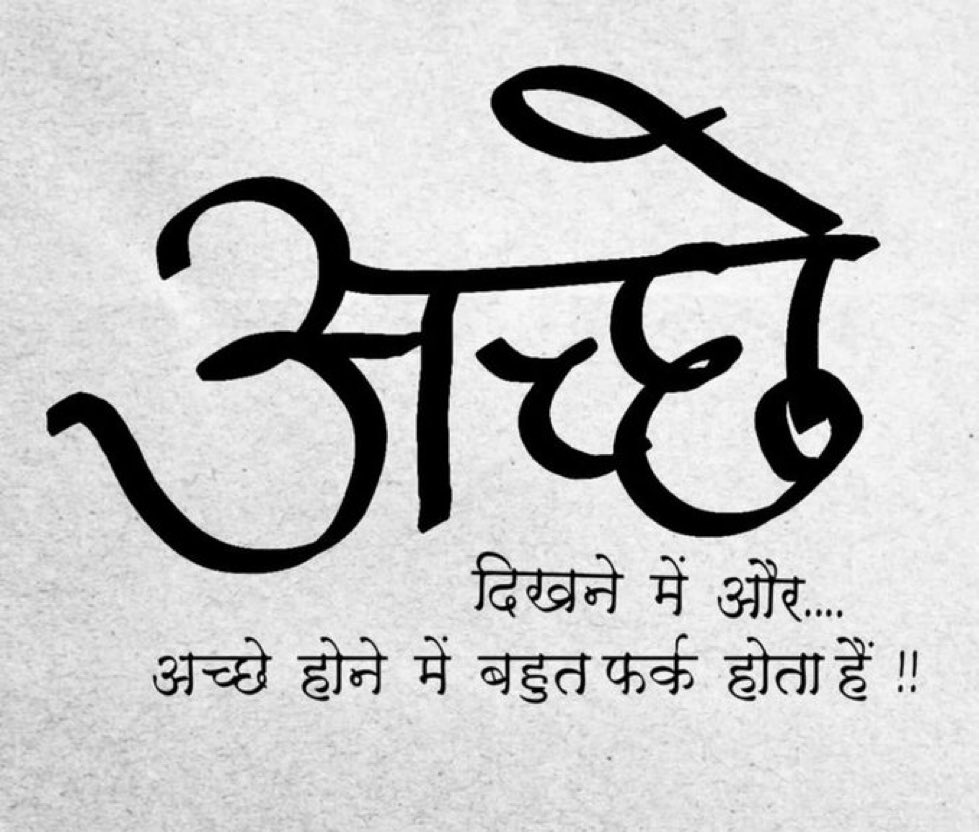 अच्छे
दिखने में और....
अच्छे होने में बहुत फर्क होता हैं !!